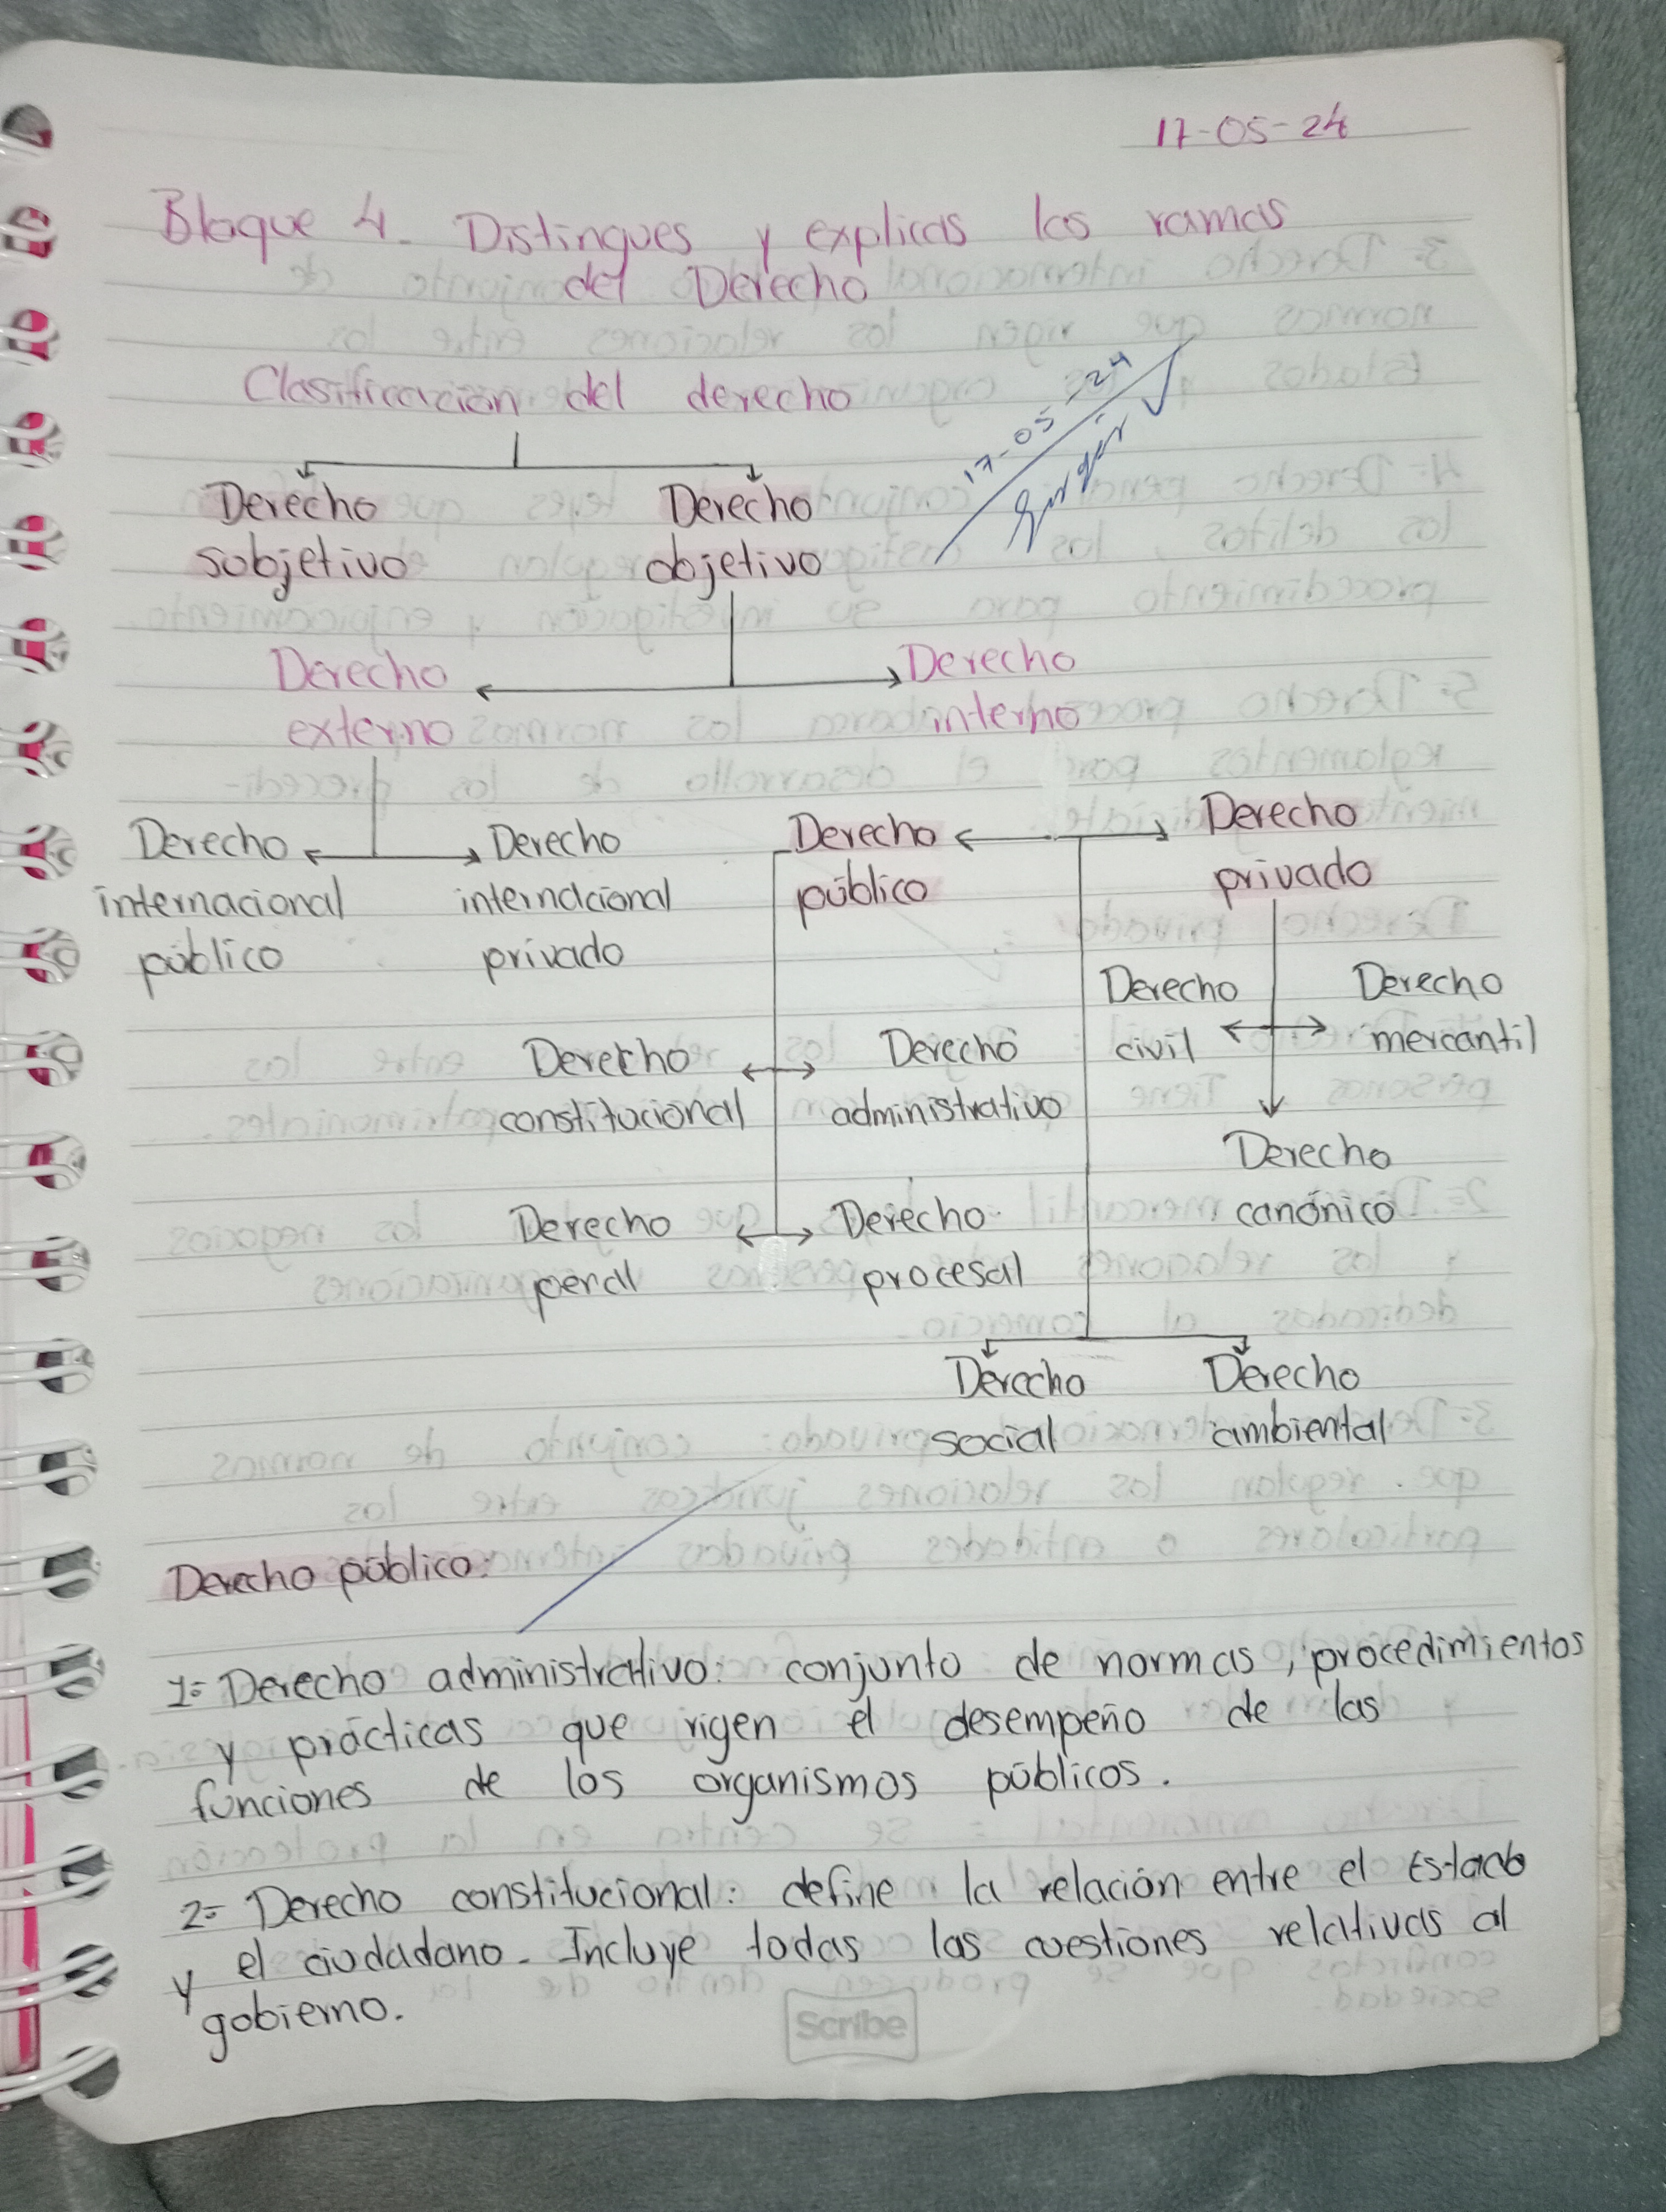 17-05-24
Bloque 4. Distingues y explicas las ramas
del Derecho
Clasificación del derecho
17-05-24
Derecho
sobjetivo
Derecho
objetivo
Derecho
externo
Derecho
interno
Derecho
internacional
público
Derecho
internacional
privado
Derecho
público
Derecho
privado
Derecho
civil
Derecho
mercantil
Derecho
constitucional
Derecho
administrativo
Derecho
canónico
Derecho
penal
Derecho
procesal
Derecho
social
Derecho
ambiental
Derecho público:
1= Derecho administrativo: conjunto de normas, procedimientos
y prácticas que rigen el desempeño de las
funciones de los organismos públicos.
2= Derecho constitucional: define la relación entre el Estado
y el ciudadano. Incluye todas las cuestiones relativas al
gobierno.
Scribe